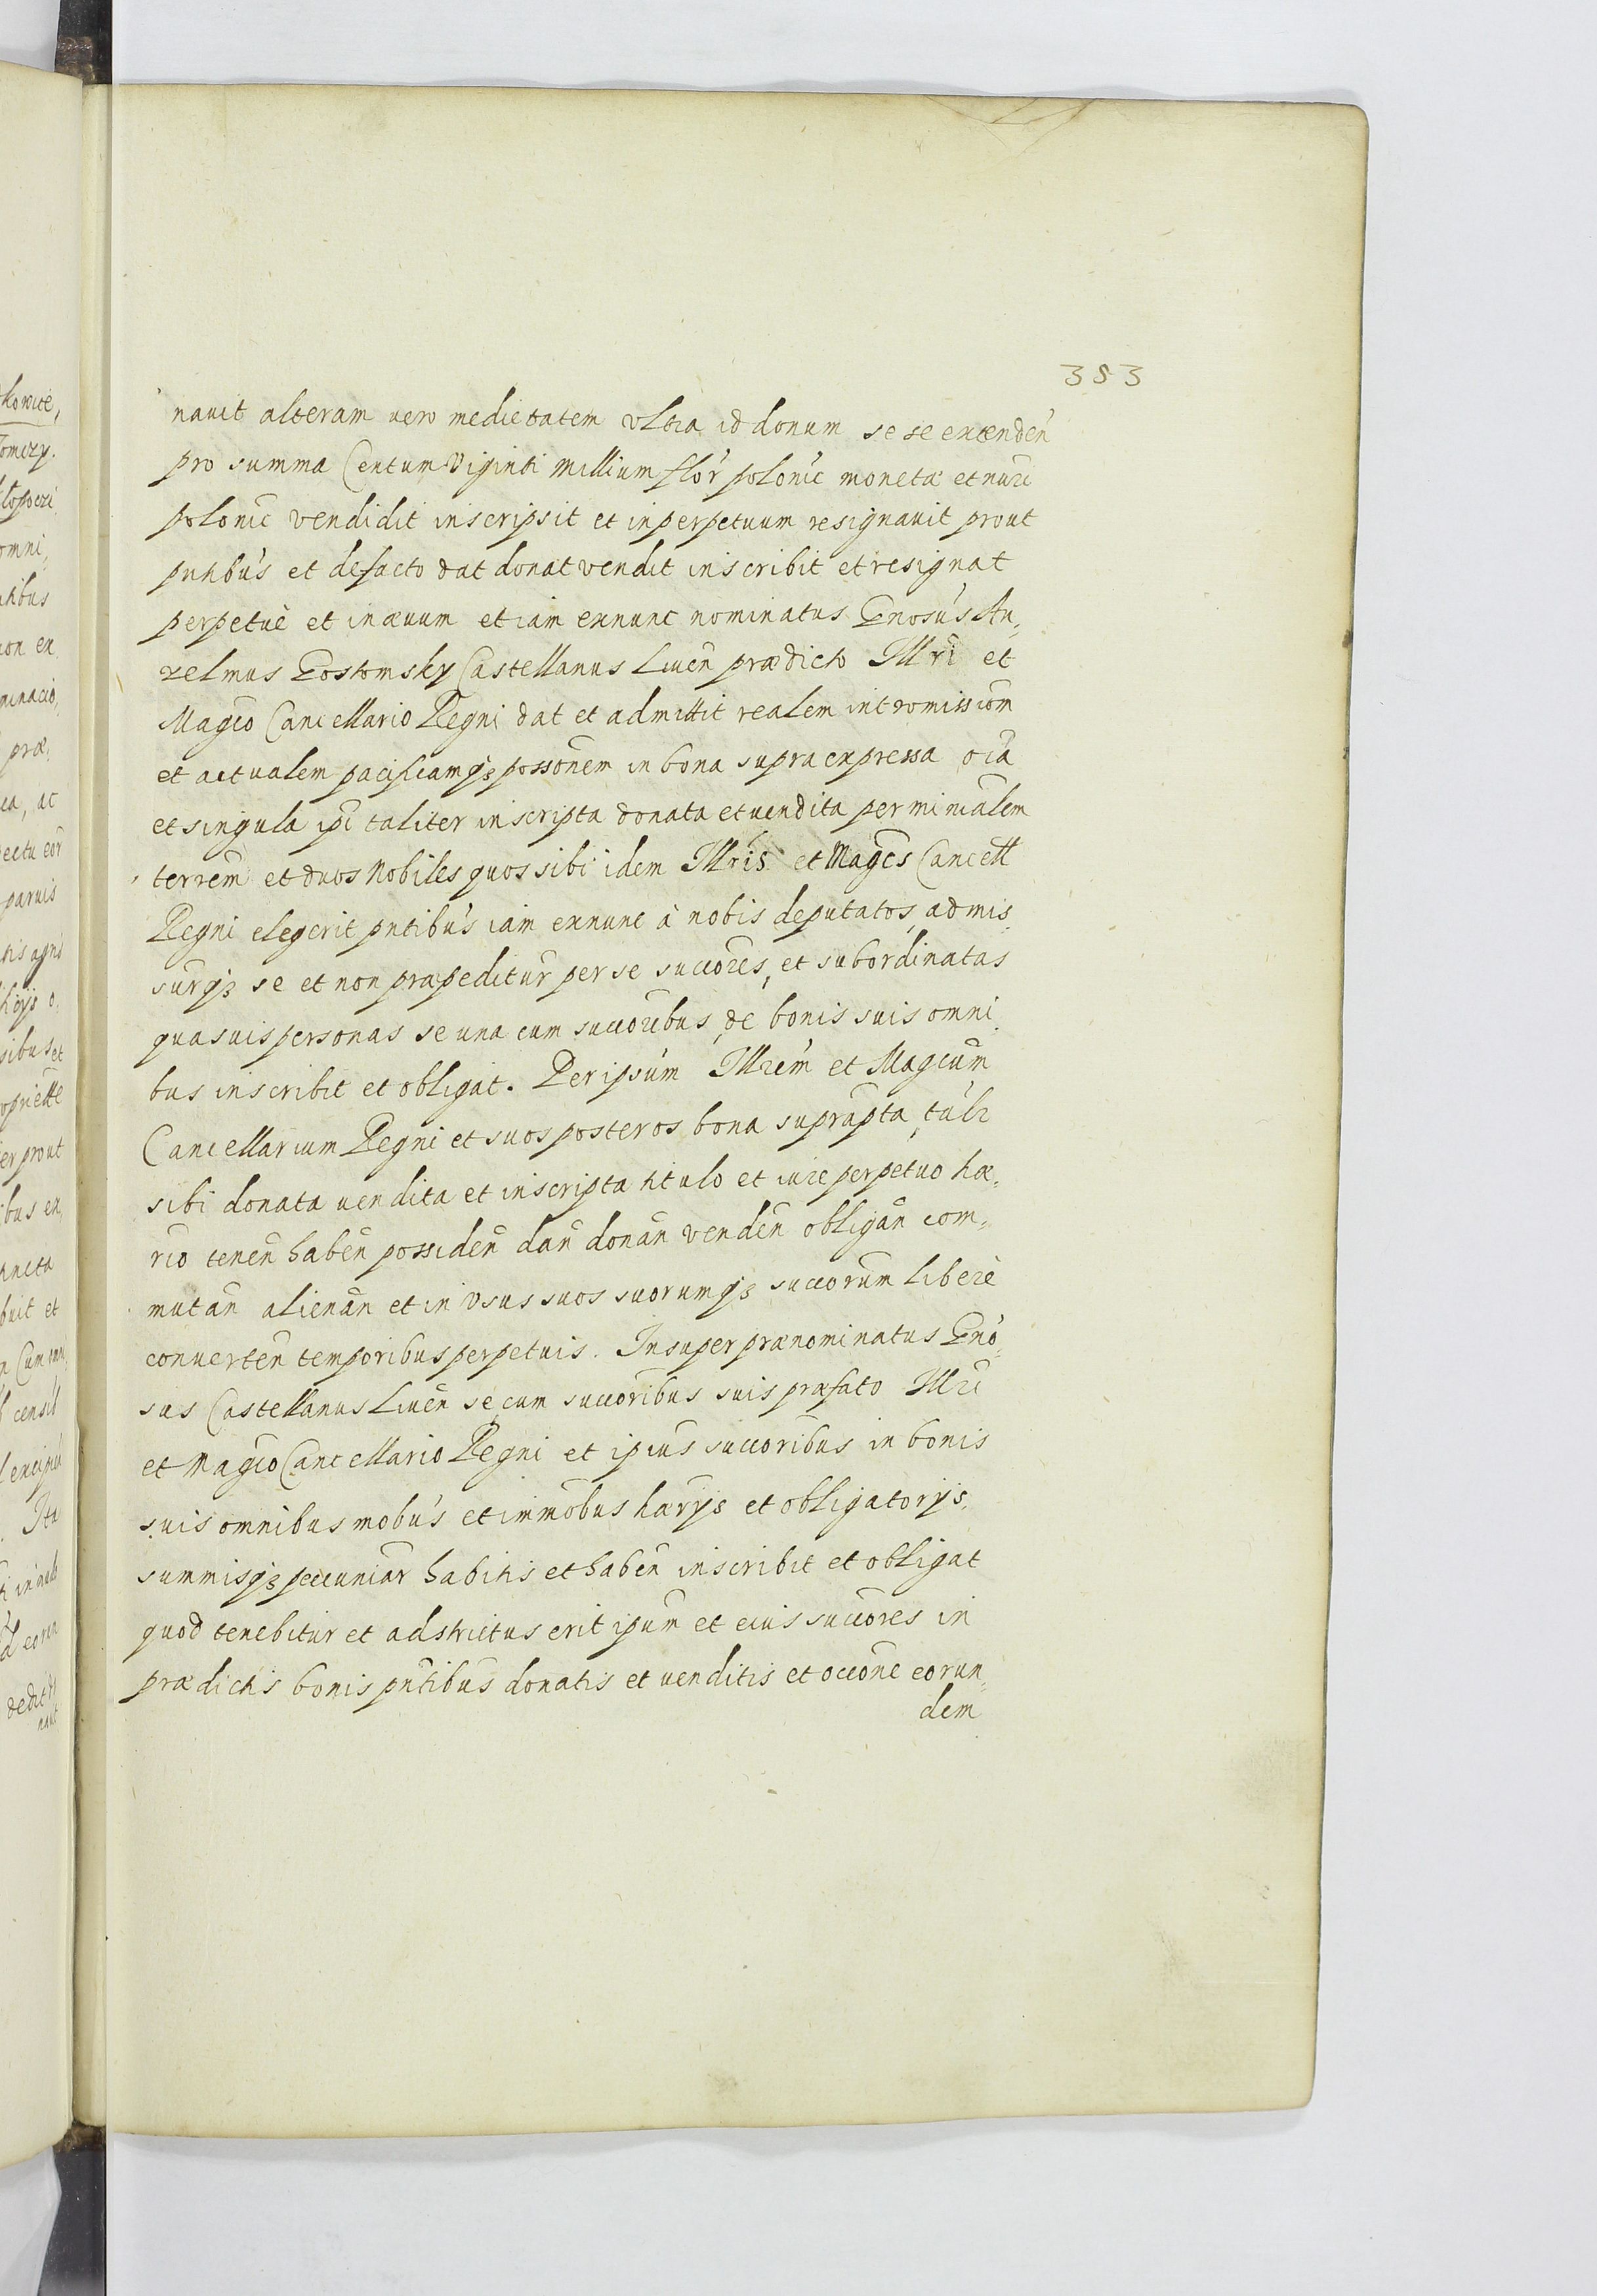 353
nauit alteram uero medietatem ultra id donum se se extenden̄
pro summa Centum Viginti Millium flor̄ polonic̄ moneta et nuri
polonic̄ vendidit inscripsit et inperpetuum resignauit prout
pntibūs et defacto dat donat vendit inscribit et resignat
perpetuè et in æuum et iam exnunc nominatus Gnosūs An„
zelmus Gostomsky Castellanus Liuen̄ prædicto Illri et
Magco Cancellario Regni dat et admittit realem intromissiom̄
et actualem pacificamq₃ possonem in bona supra expressa oīa
et singula ipi taliter inscripta donata et uendita per minialem̄
terrem̄ et duos Nobiles quos sibi idem Illris et Magcs Cancell
Regni elegerit pntibūs iam exnunc à nobis deputatos, admis„
surq₃ se et non præpeditur per se succores, et subordinatas
quasuis personas se una cum succoribus, de bonis suis omni„
bus inscribit et obligat. Per ipsum Illrem̄ et Magcum̄
Cancellarium Regni et suos posteros bona suprapta, talr
sibi donata uendita et inscripta titulo et iure perpetuo hæ„
rio tenen̄ haben̄ possiden̄ dan̄ donan̄ venden̄ obligan̄ com„
mutan̄ alienan̄ et in Vsus suos suorumq₃ succorum̄ liberè
conuerten̄ temporibus perpetuis. Insuper prænominatus Gno„
sus Castellanus Liuen̄ se, cum succoribus suis præfato Illri
et Magco Cancellario Regni et ipius succoribus in bonis
suis omnibus mobūs et immobus harijs et obligatorijs,
summisq₃ pecuniar̄ habitis et haben̄ inscribit et obligat
quod tenebitur et adstrictus erit ipum et eius succores in
prædictis bonis pntibus donatis et uenditis et occone eorun„
dem